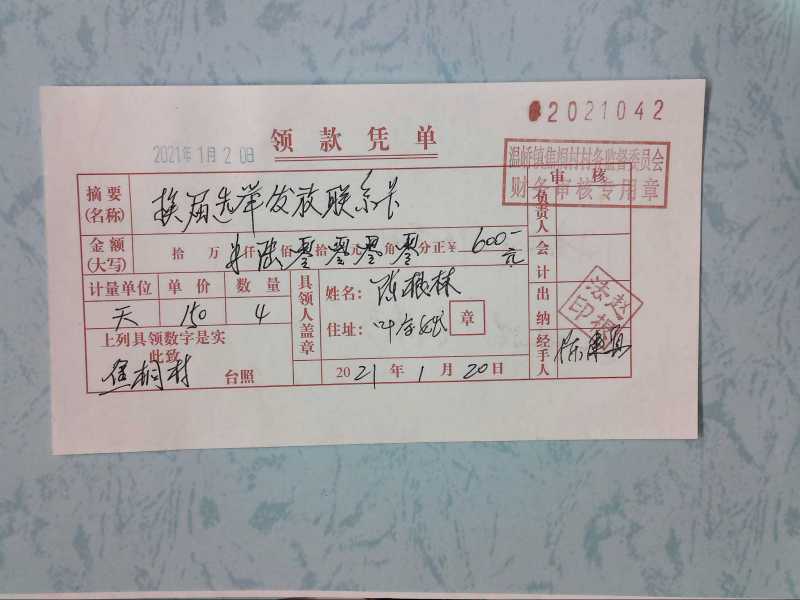 2021042
2021年1月20日
领款凭单
温峤镇焦桐村村务监督委员会
财务审核专用章
摘要(名称) 换届选举发放联系卡
审核
负责人
金额(大写) 拾万仟陆佰零拾零元零角零分正¥600-元
会计
计量单位 单价 数量
天 150 4
具领人盖章
姓名:陈根林
住址:
章
出纳
赵法印
上列具领数字是实
此致
焦桐村 台照
2021年1月20日
经手人